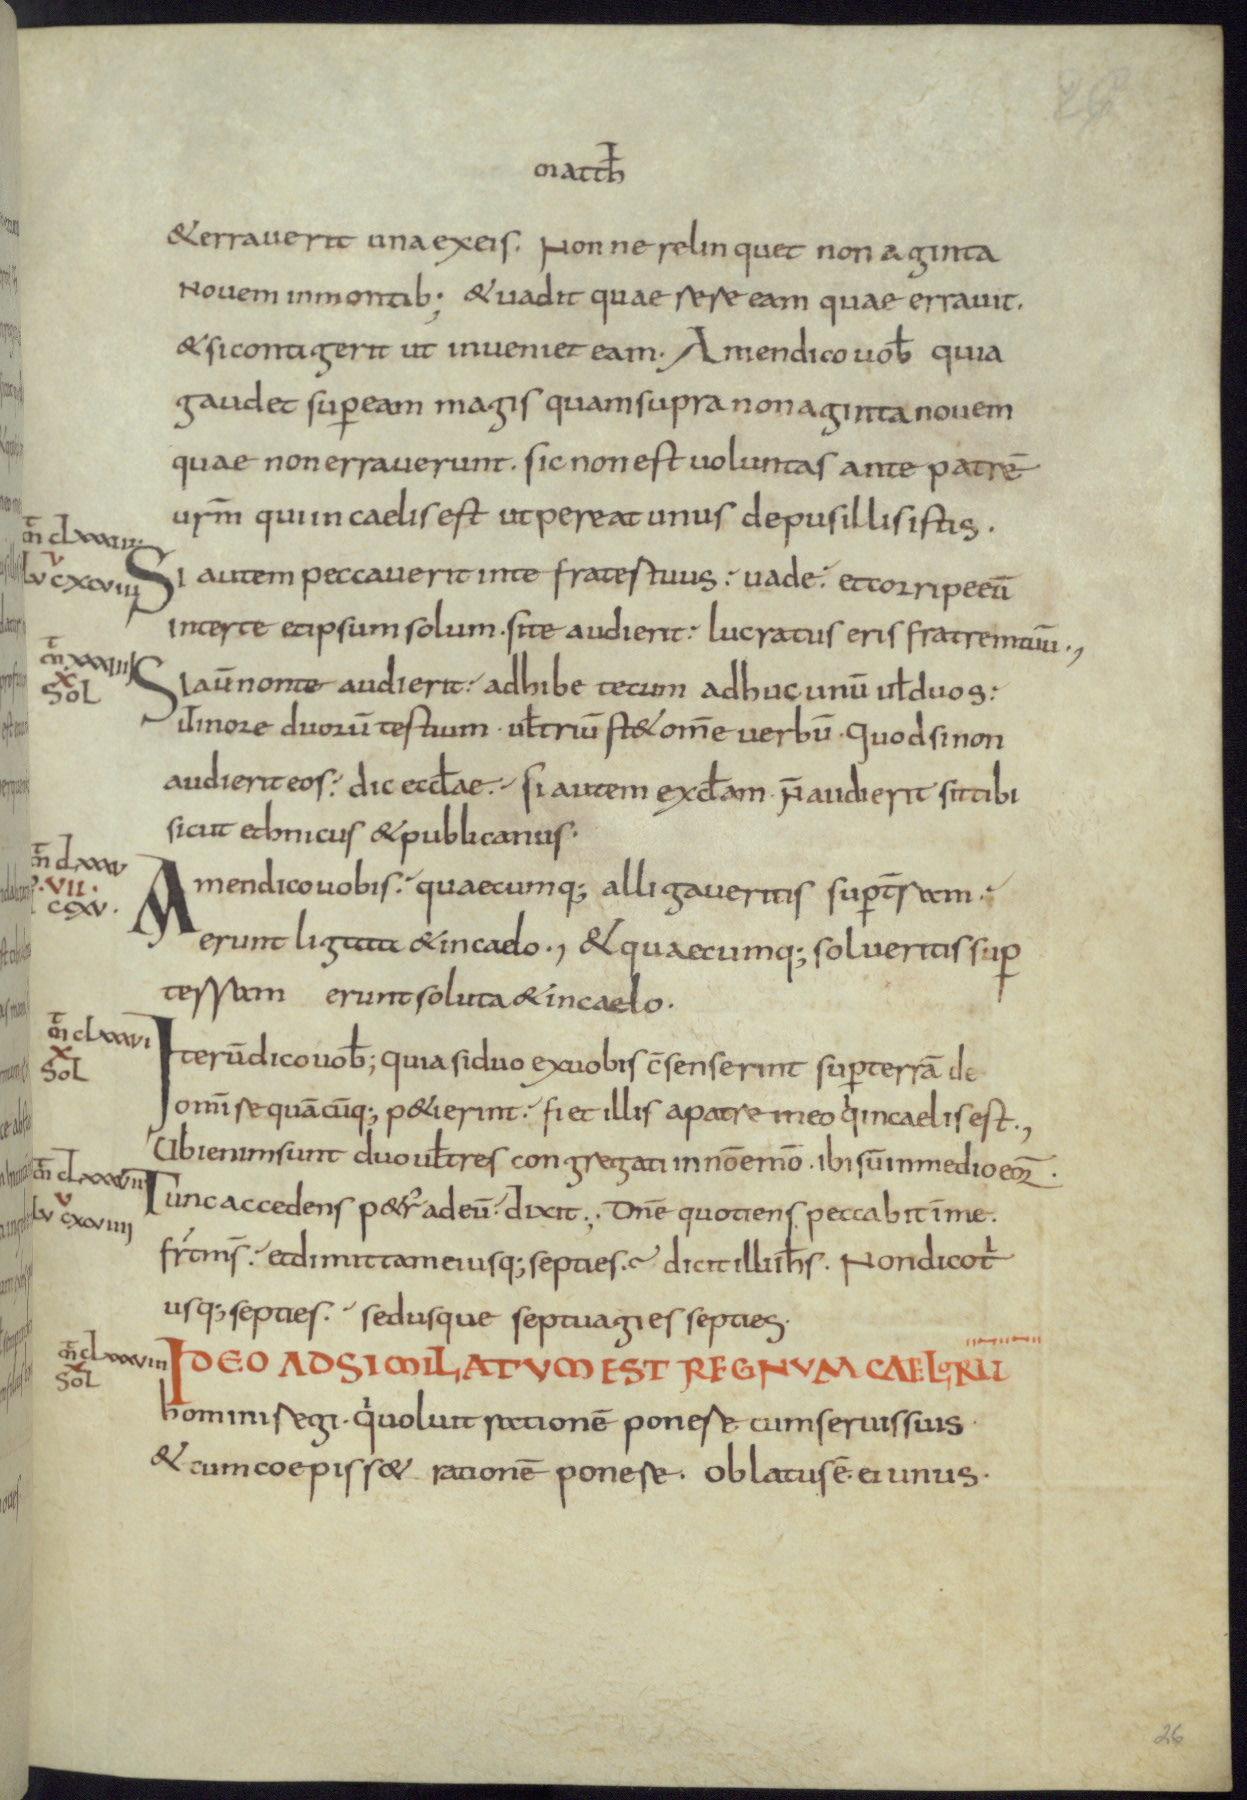 matth̄
& erraverit una ex eis. Nonne relinquet nonaginta
novem in montib; & vadit quaerere eam quae erravit.
& si contigerit ut inveniet eam. Amen dico vob̄ quia
gaudet sup̄ eam magis quam supra nonaginta novem
quae non erraverunt. sic non est voluntas ante patrē
urm̄ qui in caelis est ut pereat unus de pusillis istis.
m̄t clxxxiii
v
lv cxcviii
Si autem peccaverit in te frater tuus: vade: et corripe eū
inter te et ipsum solum. si te audierit: lucratus eris fratrem tuū.,
m̄t xxxiiii
x
Sol
Si aū non te audierit: adhibe tecum adhuc unū ul̄ duos:
ut̄ in ore duorū testium. ul̄ triū st& om̄e verbū. Quod si non
audierit eos: dic eccl̄ae. si autem & eccl̄am n̄ audierit sit tibi
sicut ethnicus & publicanus.
m̄t clxxxv
.VII.
ccxv.
Amen dico vobis: quaecumq; alligaveritis sup̄ t̄ram.
erunt ligata & in caelo., & quaecumq; solveritis sup̄
terram erunt soluta & in caelo.
m̄t clxxxvi
x
Sol
Iterū dico vob̄; quia si duo ex vobis c̄senserint sup̄ terrā de
om̄i re quācūq; p&ierint: fiet illis a patre meo q̄ in caelis est.,
Ubi enim sunt duo ul̄ tres congregati in nōe mō. ibi sū in medio eor̄.
m̄t clxxxvii
v
lv cxcviiii
Tunc accedens p&r' ad eū: dixit: Dn̄e quotiens peccabit ī me.
fr̄ ms̄: et dimittam ei usq; septies. dicit illi ih̄s. Non dico t̄
usq; septies. sed usque septuagies septies.
m̄t clxxxviii
x
Sol
IDEO ADSIMILATUM EST REGNUM CAELORUM
homini regi. q̄ voluit rationē ponere cum servis suis
& cum coepiss& rationē ponere. oblatus ē ei unus.
26